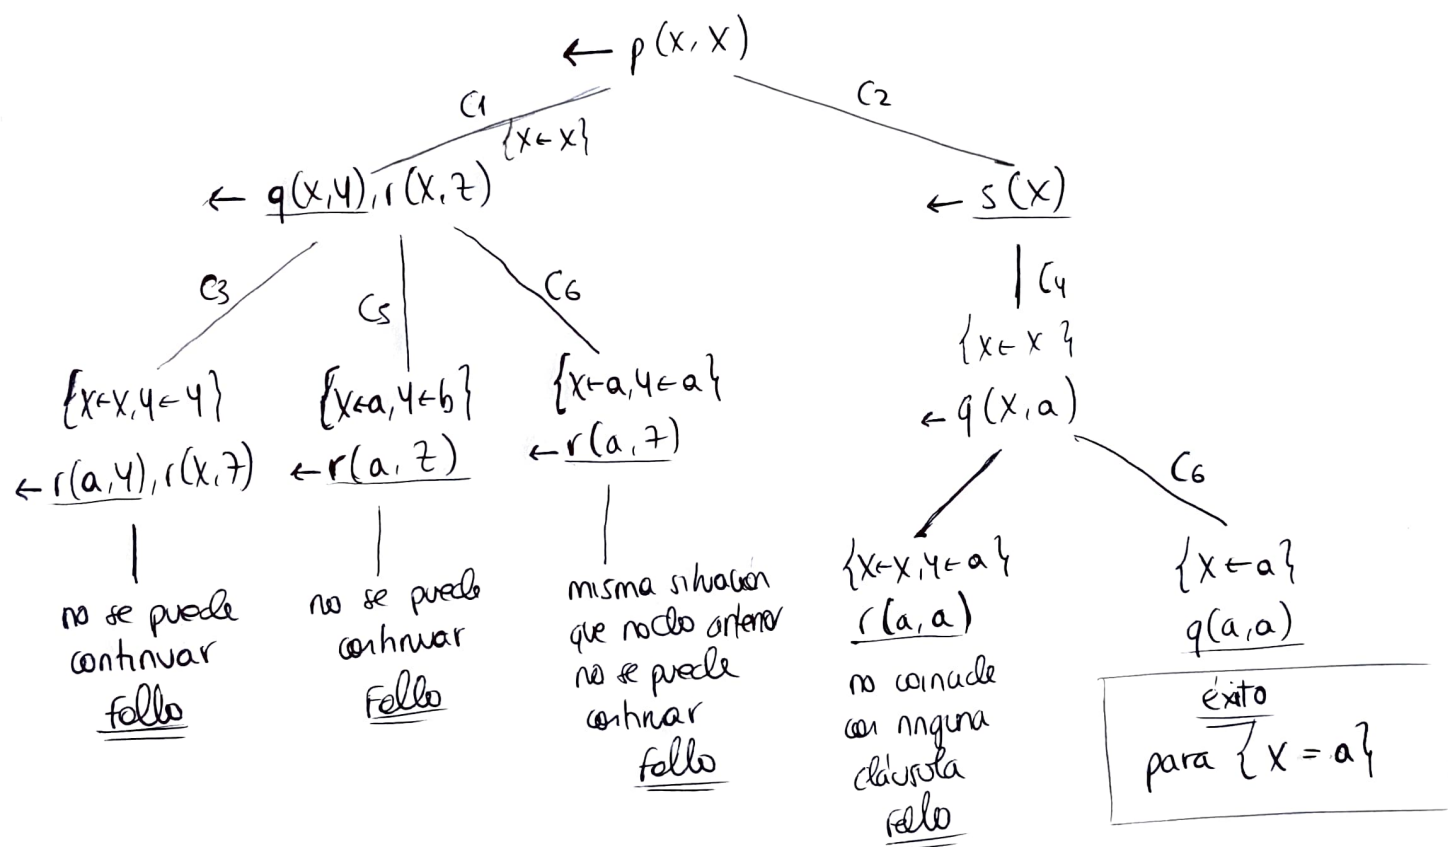 ← p(x, x)
C1
C2
{x←x}
← q(x,y), r(x,z)
← s(x)
C3
C5
C6
C4
{x←x}
{x←x, y←y}
{x←a, y←b}
{x←a, y←a}
← q(x,a)
← r(a,y), r(x,z)
← r(a, z)
← r(a, z)
C6
no se puede
continuar
fallo
no se puede
continuar
Fallo
misma situación
que nodo anterior
no se puede
continuar
fallo
{x←x, y←a}
r(a,a)
no coincide
con ninguna
cláusula
fallo
{x←a}
q(a,a)
éxito
para {x = a}